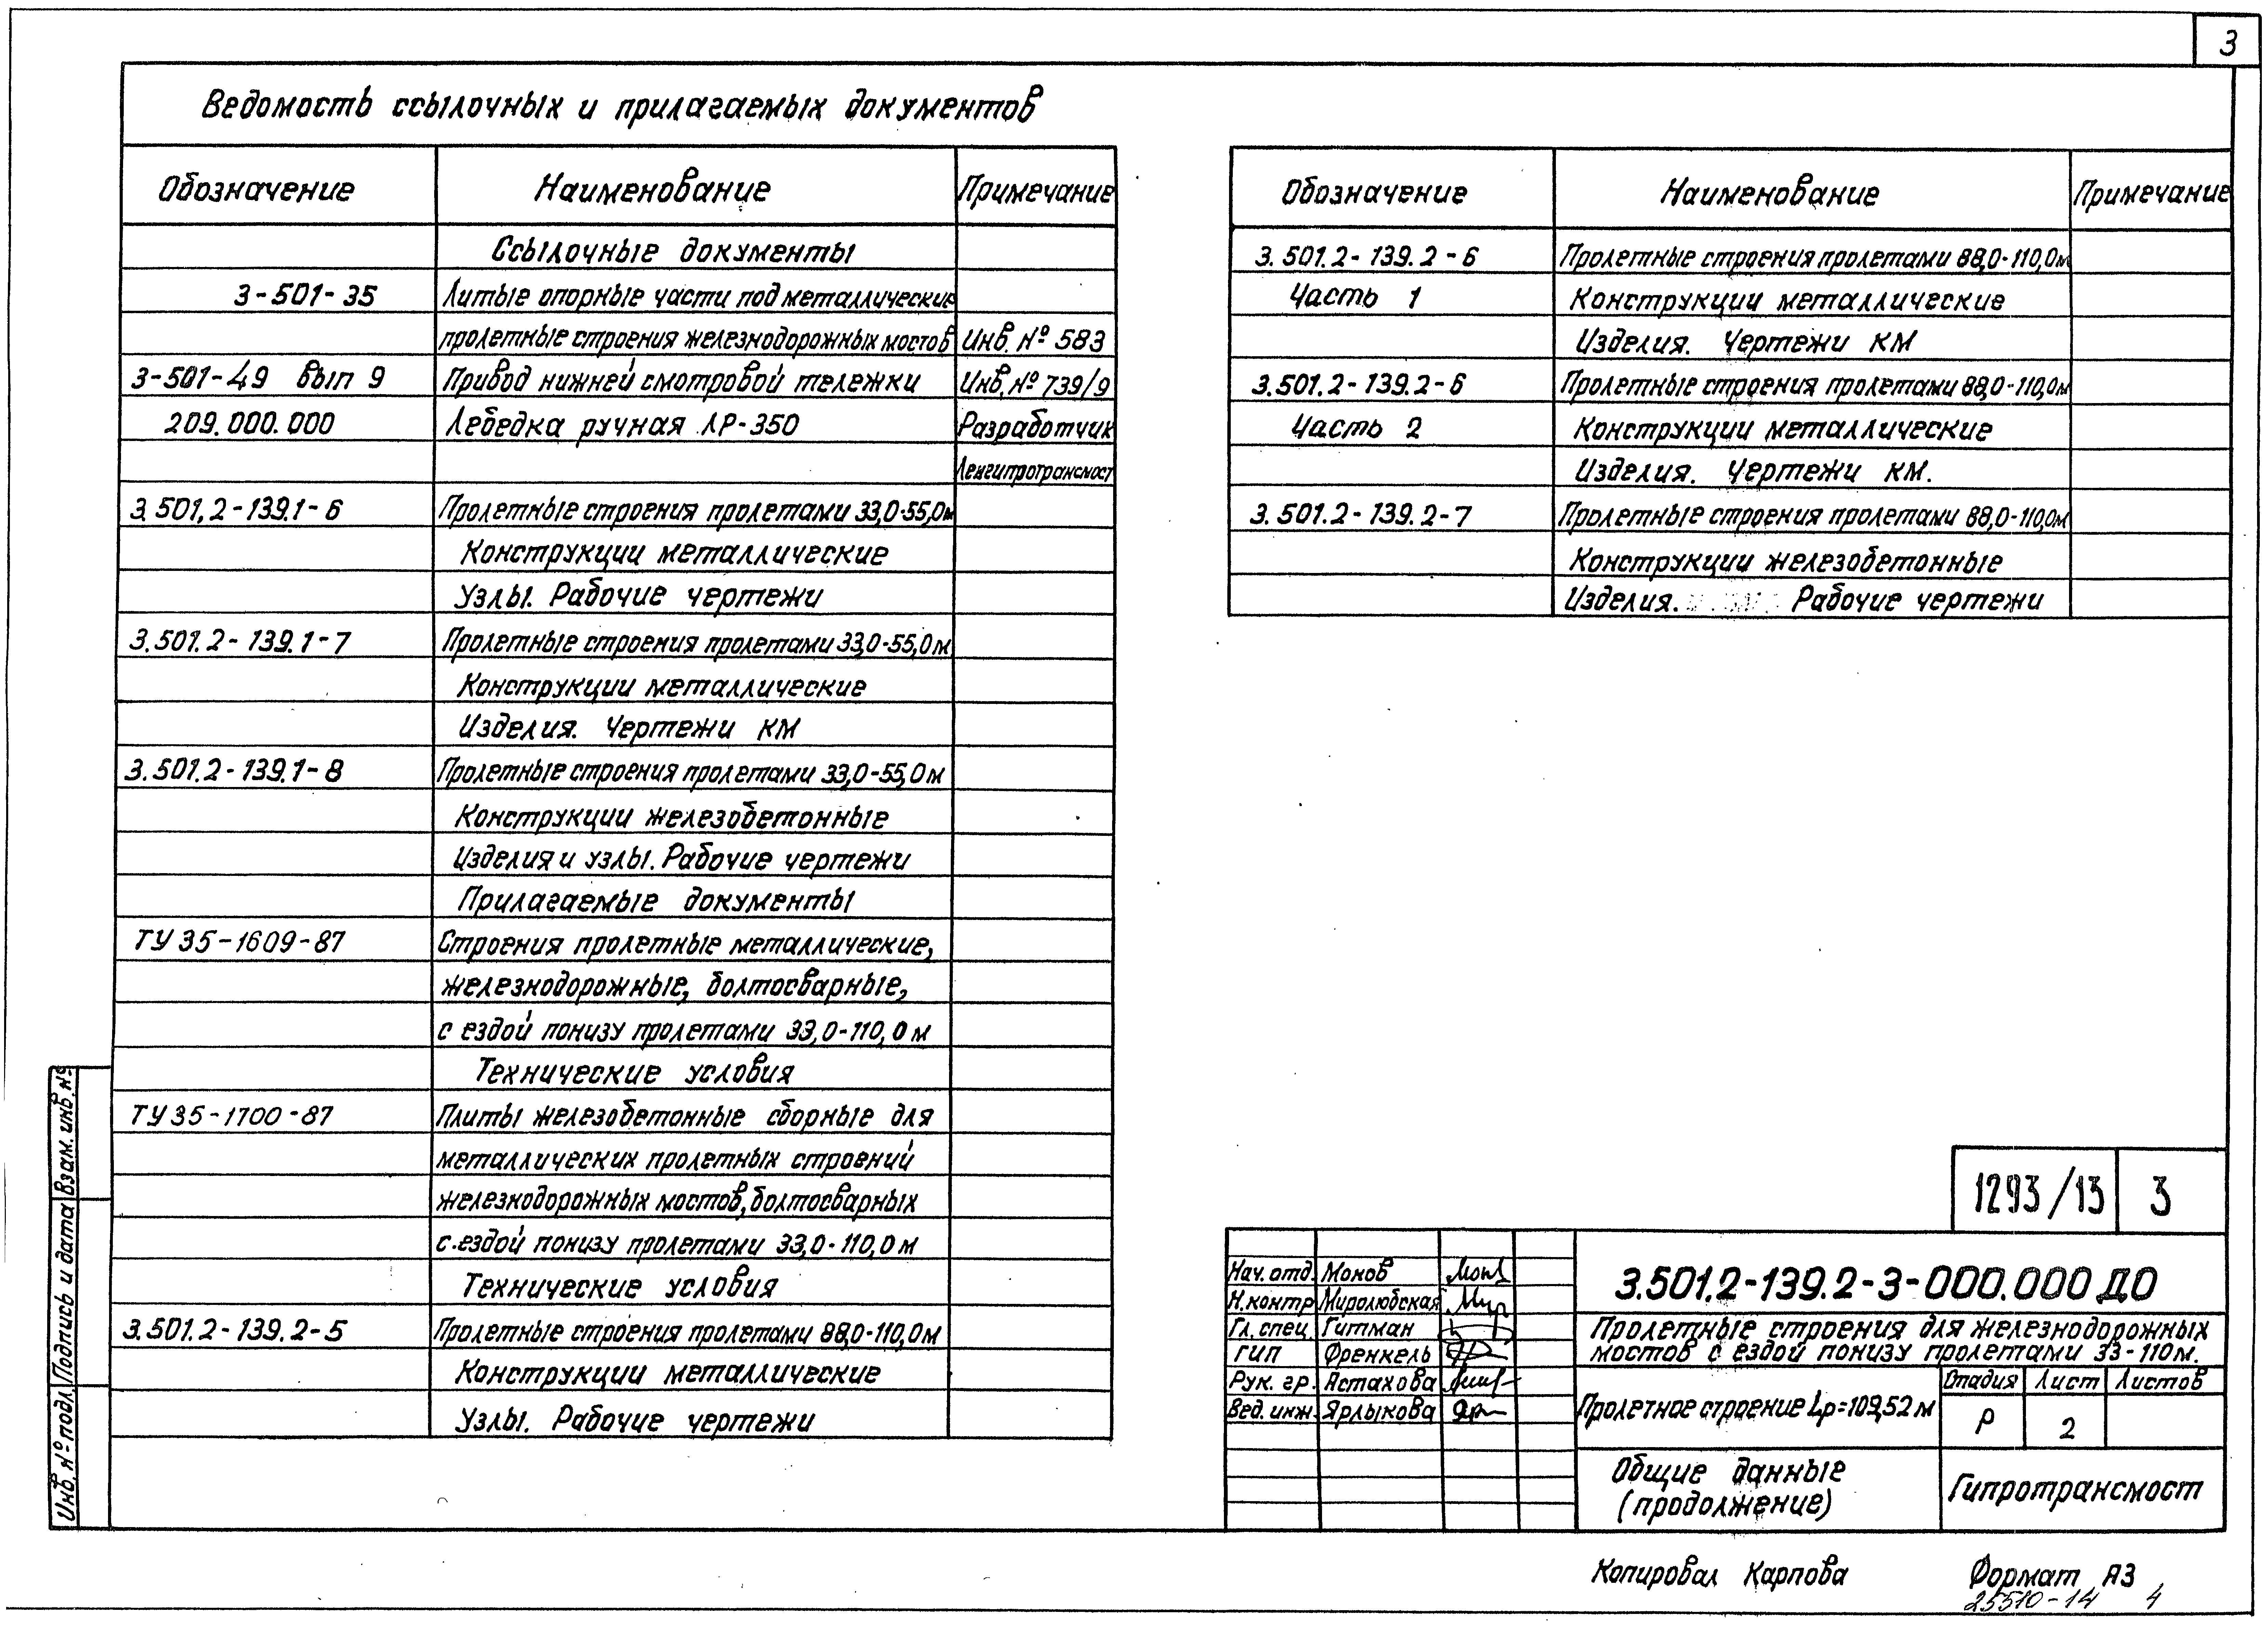 3
Ведомость ссылочных и прилагаемых документов
Обозначение Наименование Примечание
Ссылочные документы
3-501-35 Литые опорные части под металлические
пролетные строения железнодорожных мостов Инв. № 583
3-501-49 вып 9 Привод нижней смотровой тележки Инв. № 739/9
209.000.000 Лебедка ручная ЛР-350 Разработчик
Ленгипротрансмост
3.501.2-139.1-6 Пролетные строения пролетами 33,0-55,0м
Конструкции металлические
Узлы. Рабочие чертежи
3.501.2-139.1-7 Пролетные строения пролетами 33,0-55,0м
Конструкции металлические
Изделия. Чертежи КМ
3.501.2-139.1-8 Пролетные строения пролетами 33,0-55,0м
Конструкции железобетонные
Изделия и узлы. Рабочие чертежи
Прилагаемые документы
ТУ 35-1609-87 Строения пролетные металлические,
железнодорожные, болтосварные,
с ездой понизу пролетами 33,0-110,0м
Технические условия
ТУ 35-1700-87 Плиты железобетонные сборные для
металлических пролетных строений
железнодорожных мостов, болтосварных
с ездой понизу пролетами 33,0-110,0м
Технические условия
3.501.2-139.2-5 Пролетные строения пролетами 88,0-110,0м
Конструкции металлические
Узлы. Рабочие чертежи
Обозначение Наименование Примечание
3.501.2-139.2-6 Пролетные строения пролетами 88,0-110,0м
Часть 1 Конструкции металлические
Изделия. Чертежи КМ
3.501.2-139.2-6 Пролетные строения пролетами 88,0-110,0м
Часть 2 Конструкции металлические
Изделия. Чертежи КМ.
3.501.2-139.2-7 Пролетные строения пролетами 88,0-110,0м
Конструкции железобетонные
Изделия. Рабочие чертежи
Инв. № подл. Подпись и дата Взам. инв. №
1293/13 3
Нач. отд. Монов
Н.контр Миролюбская
Гл. спец. Гитман
ГИП Френкель
Рук. гр. Астахова
Вед. инж. Ярлыкова
3.501.2-139.2-3-000.000 ДО
Пролетные строения для железнодорожных
мостов с ездой понизу пролетами 33-110м.
Пролетное строение Lр=109,52 м
Стадия Лист Листов
Р 2
Общие данные
(продолжение)
Гипротрансмост
Копировал Карпова Формат А3
25510-14 4